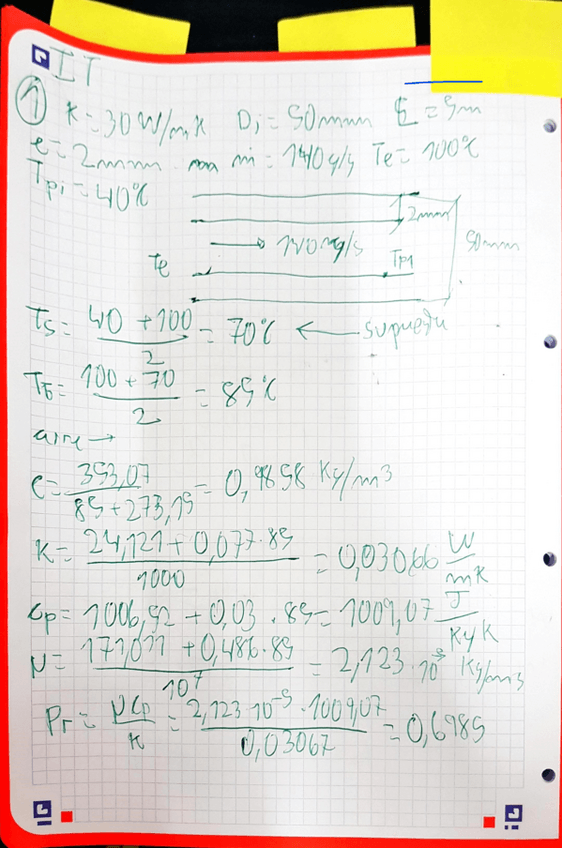 IT
① K = 30 W/mK Di = 50mm L = 5m
e = 2mm ṁ = 140 g/s Te = 100°C
Tpi = 40°C
2mm
→ 140 g/s
50mm
Te Tpi
Ts = (40 + 100)/2 = 70°C ← supuesta
Tb = (100 + 70)/2 = 85°C
aire →
ρ = 353,07/(85 + 273,15) = 0,9858 Kg/m3
K = (24,121 + 0,077·85)/1000 = 0,03066 W/mK
Cp = 1006,52 + 0,03 · 85 = 1009,07 J/KgK
μ = (171,011 + 0,486·85)/10^7 = 2,123·10^-5 Kg/ms
Pr = μCp/K = (2,123·10^-5 · 1009,07)/0,03067 = 0,6985